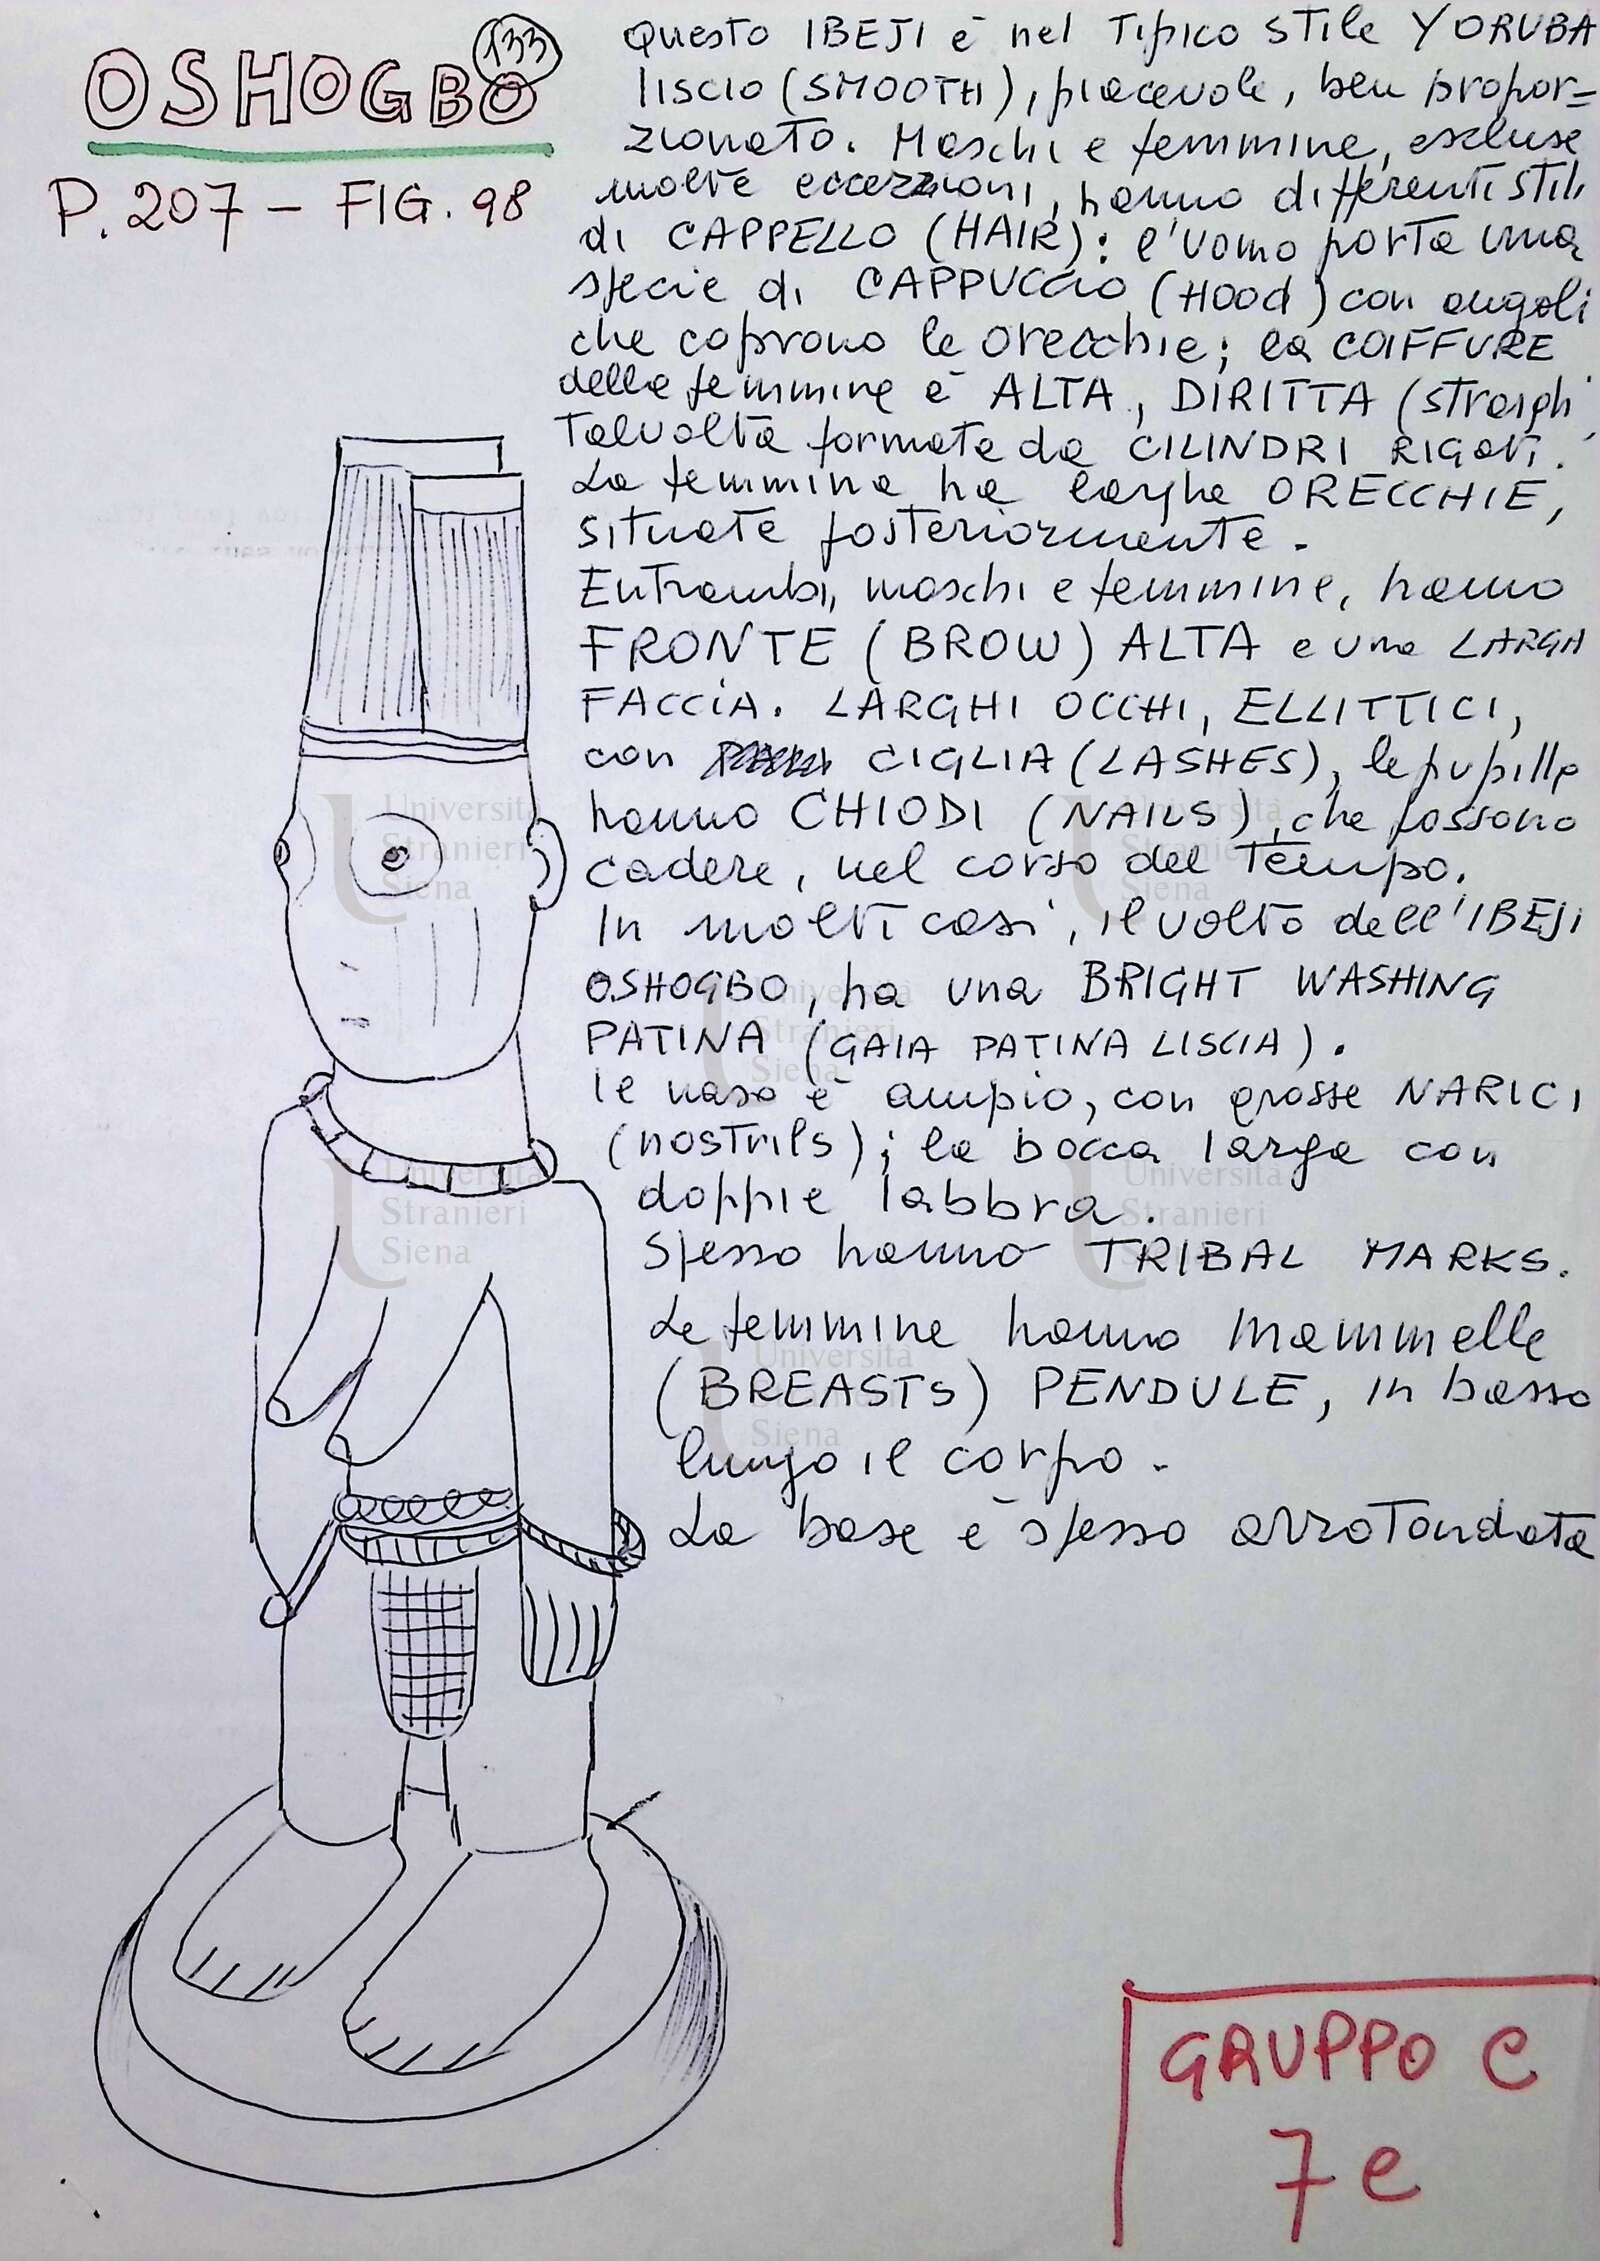 133
OSHOGBO
P. 207 - FIG. 98
Questo IBEJI è nel Tipico STile YORUBA
liscio (SMOOTH), piacevole, ben propor=
zionato. Maschi e femmine, escluse
molte eccezzioni, hanno differenti stili
di CAPPELLO (HAIR): l'uomo porta una
specie di CAPPUCCIO (HOOd) con angoli
che coprono le orecchie; la COIFFURE
delle femmine è ALTA, DIRITTA (straigh
Talvolta formata da CILINDRI RIGATI.
La femmina ha larghe ORECCHIE,
situate posteriormente.
Entrambi, maschi e femmine, hanno
FRONTE (BROW) ALTA e una LARGA
FACCIA. LARGHI OCCHI, ELLITTICI,
con CIGLIA (LASHES), le pupille
hanno CHIODI (NAILS), che possono
cadere, nel corso del Tempo.
In molti casi, il volto dell'IBEJI
OSHOGBO, ha una BRIGHT WASHING
PATINA (GAIA PATINA LISCIA).
Il naso è ampio, con grosse NARICI
(nostrils); la bocca larga con
doppie labbra.
Spesso hanno TRIBAL MARKS.
Le femmine hanno mammelle
(BREASTS) PENDULE, in basso
lungo il corpo.
La base è spesso arrotondata
GRUPPO C
7e
Università
Stranieri
Siena
Università
Stranieri
Siena
Università
Stranieri
Siena
Università
Stranieri
Siena
Università
Stranieri
Siena
Università
Stranieri
Siena